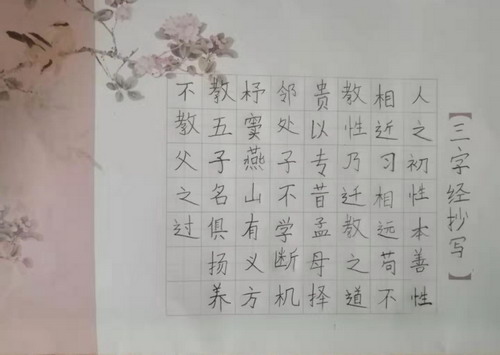 【三字经抄写】
人之初性本善性
相近习相远苟不
教性乃迁教之道
贵以专昔孟母择
邻处子不学断机
杼窦燕山有义方
教五子名俱扬养
不教父之过